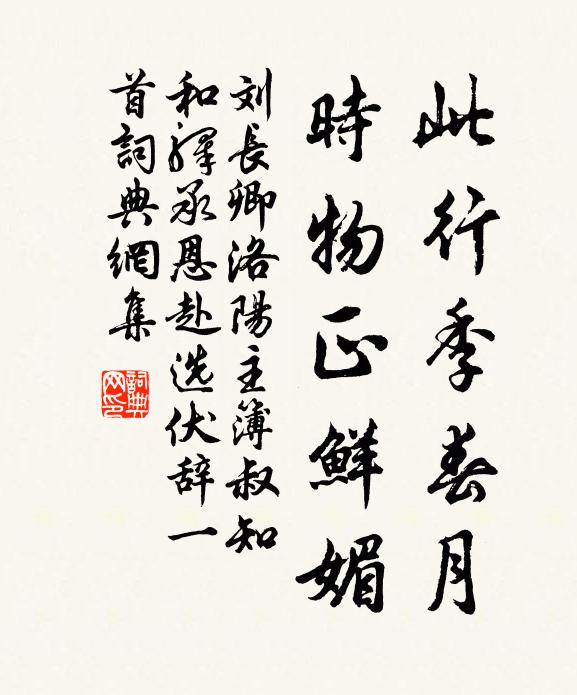 此行季春月
時物正鮮媚
刘長卿洛陽主簿叔知
和驛承恩赴选伏辞一
首詞典網集
詞典
网印